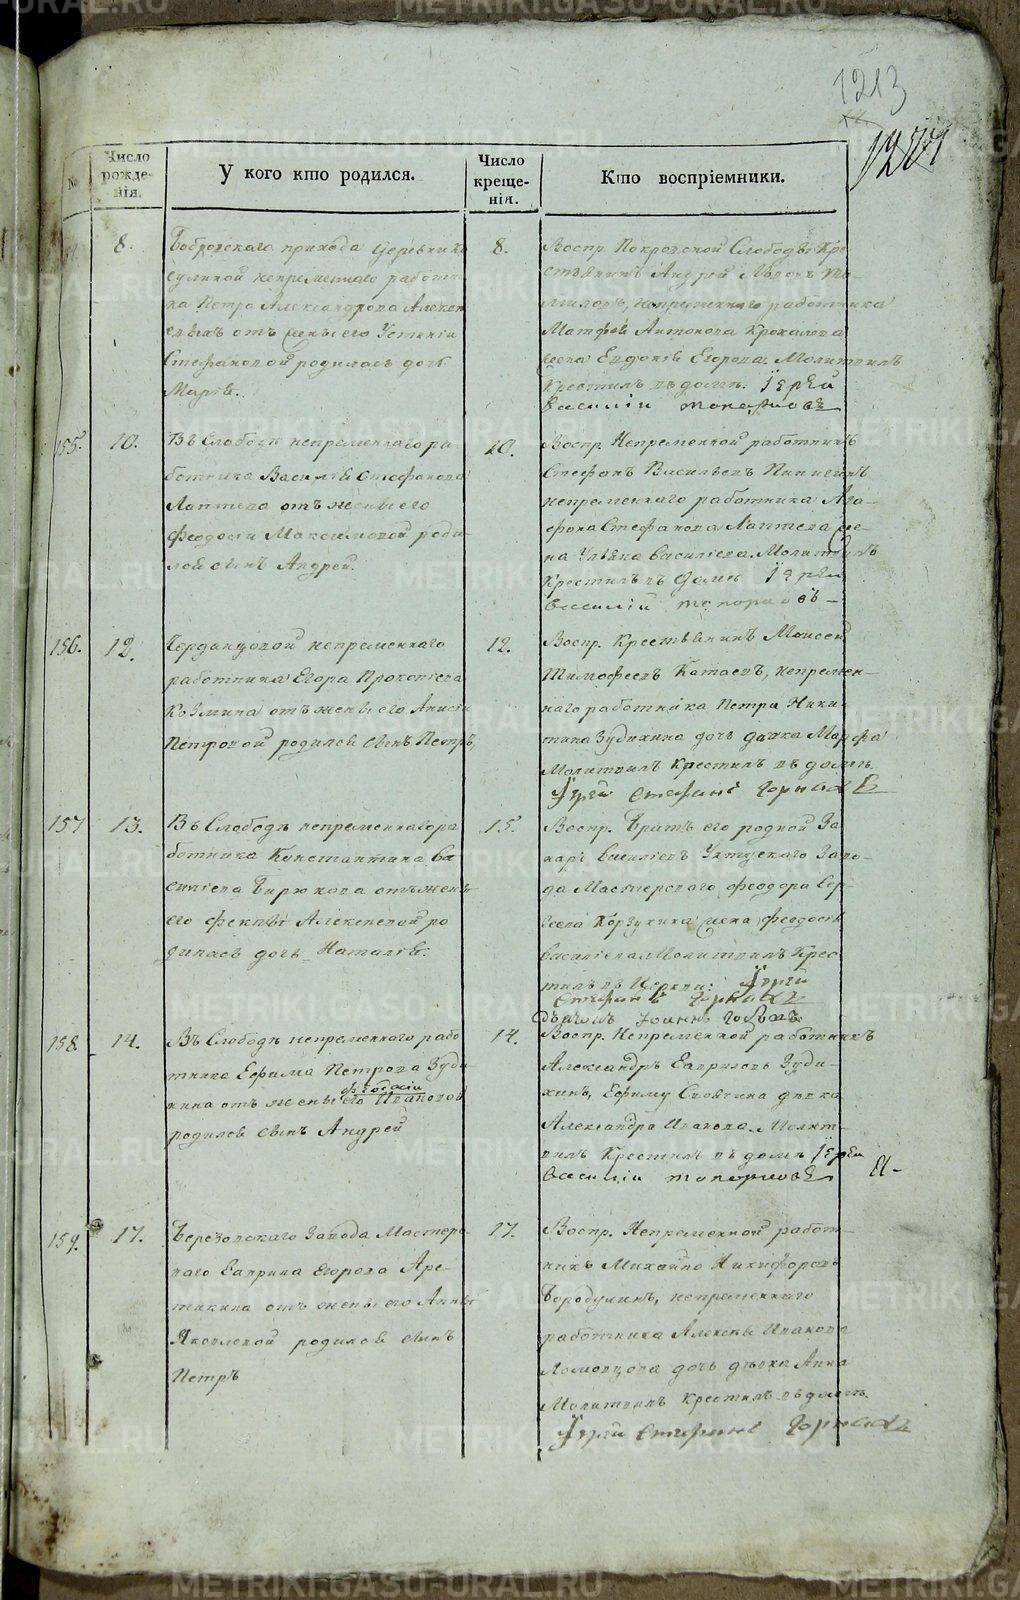 1213
1204
№
Число рожде-нія.
У кого кто родился.
Число креще-нія.
Кто воспріемники.
8.
Бобровскаго прихода деревни
непременнаго работни-
ка Петра Александрова Алексе
евыхъ отъ жены его Устиніи
Стефановой родилась дочь
Марія.
8.
Воспр. Покровской Слободы Кре
стьянинъ Андрей
непременнаго работника
Матфея Антонова
жена Евдокія Егорова. Молитвилъ
Крестилъ въ доме. Іерей
Василій Топорковъ
155.
10.
Въ Слободе непременнаго ра-
ботника Василія Стефанова
Лаптева отъ жены его
Феодосіи Максимовой роди-
лся сынъ Андрей.
10.
Воспр. Непременной работникъ
Стефанъ Васильевъ
непременнаго работника Ага-
фона Стефанова Лаптева же-
на Ульяна Василіева. Молитвилъ
Крестилъ въ доме Іерей
Василій Топорковъ
156.
12.
непременнаго
работника Егора Прокопіева
Козмина отъ жены его Анисіи
Петровой родился сынъ Петръ,
12.
Воспр. Крестьянинъ Моисей
Тимофеевъ Катаевъ, непремен-
наго работника Петра Ники-
тина Зудихина дочь девка Марфа
Молитвилъ Крестилъ въ доме.
Іерей Стефанъ Горныхъ
157
13.
Въ Слободе непременнаго ра
ботника Константина Ва
силіева Бирюкова отъ жены
его Феклы Алексеевой ро
дилась дочь Наталія.
15.
Воспр. Братъ его родной За
харъ Василіевъ Уктускаго Заво-
да Мастероваго Феодора Сер-
геева Корзухина жена Феодосія
Василіева Молитвилъ Крес
тилъ въ Церкви: Іерей
Стефанъ Горныхъ
158.
14.
Въ Слободе непременнаго рабо
тника Ефима Петрова Зуди-
хина отъ жены его Феодосіи Ивановой
родился сынъ Андрей
14.
Воспр. Непременной работникъ
Александръ Гавриловъ Зуди-
хинъ, девка
Александра Иванова. Молит-
вилъ Крестилъ въ доме Іерей
Василій Топорковъ
159.
17.
Березовскаго Завода Мастеро-
ваго Гаврила Егорова
отъ жены его Анны
Яковлевой родился сынъ
Петръ
17.
Воспр. Непременной работ-
никъ Михайло Никифоровъ
Бородулинъ, непременнаго
работника Алексея Иванова
Ломовцова дочь девка Анна
Молитвилъ Крестилъ въ доме.
Іерей Стефанъ Горныхъ
METRIKI.GASO-URAL.RU